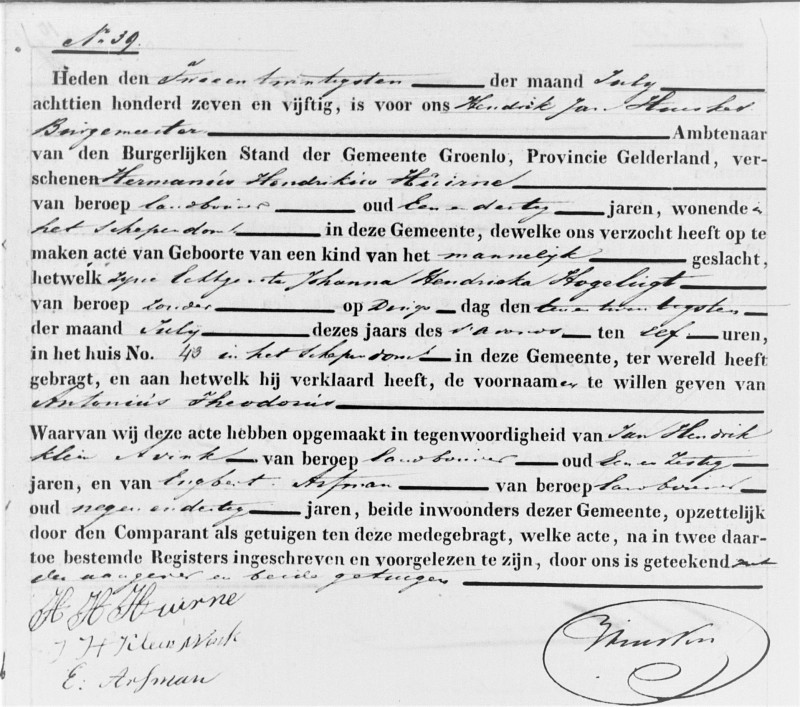 No. 39.
Heden den Tweeentwintigsten der maand July
achttien honderd zeven en vijftig, is voor ons Hendrik Jan Huesker
Burgemeester Ambtenaar
van den Burgerlijken Stand der Gemeente Groenlo, Provincie Gelderland, ver-
schenen Hermanús Hendrikús Húirne
van beroep landbouwer oud Een en dertig jaren, wonende in
het Schependom in deze Gemeente, dewelke ons verzocht heeft op te
maken acte van Geboorte van een kind van het mannelijk geslacht,
hetwelk zyne Echtgenoote Johanna Hendrieka Hogelugt
van beroep zonder op Dings dag den een en twintigsten
der maand July dezes jaars des s'avonds ten elf uren,
in het huis No. 43 in het Schependom in deze Gemeente, ter wereld heeft
gebragt, en aan hetwelk hij verklaard heeft, de voornaamen te willen geven van
Antoniús Theodorús
Waarvan wij deze acte hebben opgemaakt in tegenwoordigheid van Jan Hendrik
Klein Avink van beroep landbouwer oud Een en Zestig
jaren, en van Engbert Arfman van beroep landbouwer
oud negen en dertig jaren, beide inwoonders dezer Gemeente, opzettelijk
door den Comparant als getuigen ten deze medegebragt, welke acte, na in twee daar-
toe bestemde Registers ingeschreven en voorgelezen te zijn, door ons is geteekend met
den aangever en beide getuigen
H H Huirne
J H Klein Avink
E: Arfman